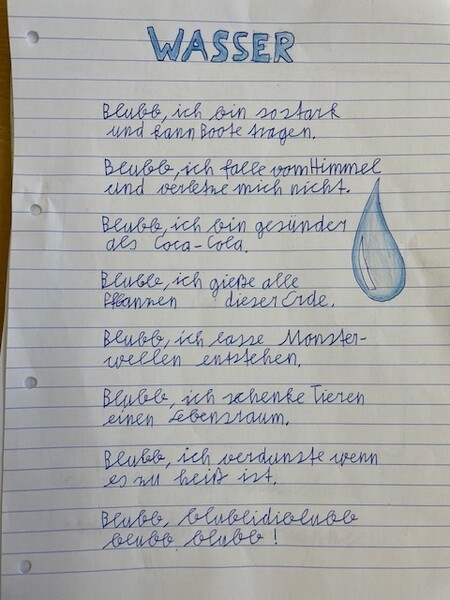 WASSER
Blubb, ich bin so stark
und kann Boote tragen.
Blubb, ich falle vom Himmel
und verletze mich nicht.
Blubb, ich bin gesünder
als Coca-Cola.
Blubb, ich gieße alle
Pflanzen dieser Erde.
Blubb, ich lasse Monster-
wellen entstehen.
Blubb, ich schenke Tieren
einen Lebensraum.
Blubb, ich verdunste wenn
es zu heiß ist.
Blubb, blubbidiblubb
blubb blubb!